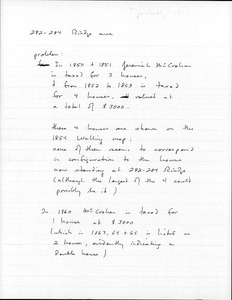 282-284 Rindge ave
problem:
In 1850 & 1851 Jeremiah McCrehan
is taxed for 3 houses,
& from 1852 to 1859 is taxed
for 4 houses, valued at
a total of $3000.
these 4 houses are shown on the
1854 Walling map;
none of them seems to correspond
in configuration to the house
now standing at 282-284 Rindge
(although the largest of the 4 could
possibly be it)
In 1860 McCrehan is taxed for
1 house at $3000
(which in 1863, 64 & 65 is listed as
2 houses, evidently indicating a
double house)